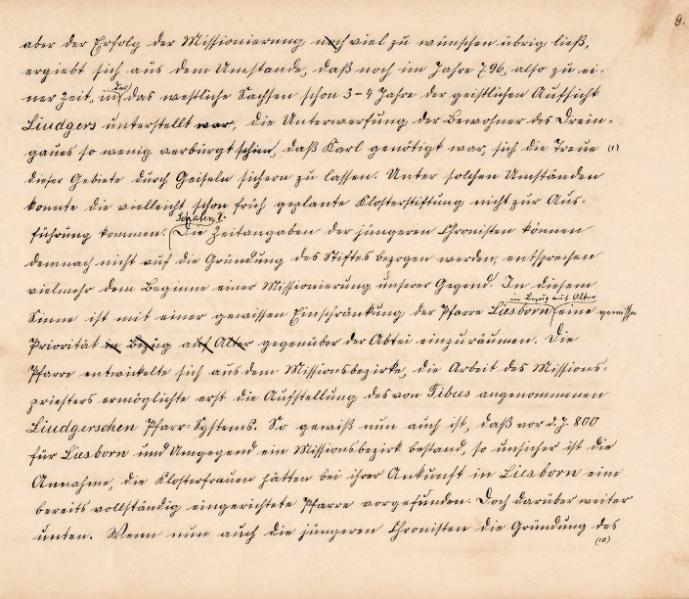 9.
aber der Erfolg der Missionierung noch viel zu wünschen übrig ließ,
ergiebt sich aus dem Umstande, daß noch im Jahre 796, also zu ei-
ner Zeit, in der das westliche Sachsen schon 3-4 Jahre der geistlichen Aufsicht
Liudgers unterstellt war, die Unterwerfung der Bewohner des Drein-
gaues so wenig verbürgt schien, daß Karl genötigt war, sich die Treue (1)
dieser Gebiete durch Geiseln sichern zu lassen. Unter solchen Umständen
konnte die vielleicht schon früh geplante Klosterstiftung nicht zur Aus-
führung kommen. Die Zeitangaben der jüngeren Chronisten können
demnach nicht auf die Gründung des Stiftes bezogen werden, entsprechen
vielmehr dem Beginne einer Missionierung unserer Gegend. In diesem
in Bezug auf Alter
Sinne ist mit einer gewissen Einschränkung der Pfarre Liesborn eine gewisse
Priorität in Bezug auf Alter gegenüber der Abtei einzuräumen. Die
Pfarre entwickelte sich aus dem Missionsbezirke, die Arbeit des Missions-
priesters ermöglichte erst die Aufstellung des von Tibus angenommenen
Liudgerschen Pfarr-Systems. So gewiß nun auch ist, daß vor d. J. 800
für Liesborn und Umgegend ein Missionsbezirk bestand, so unsicher ist die
Annahme, die Klosterfrauen hätten bei ihrer Ankunft in Liesborn eine
bereits vollständig eingerichtete Pfarre vorgefunden. Doch darüber weiter
unten. Wenn nun auch die jüngeren Chronisten die Gründung des